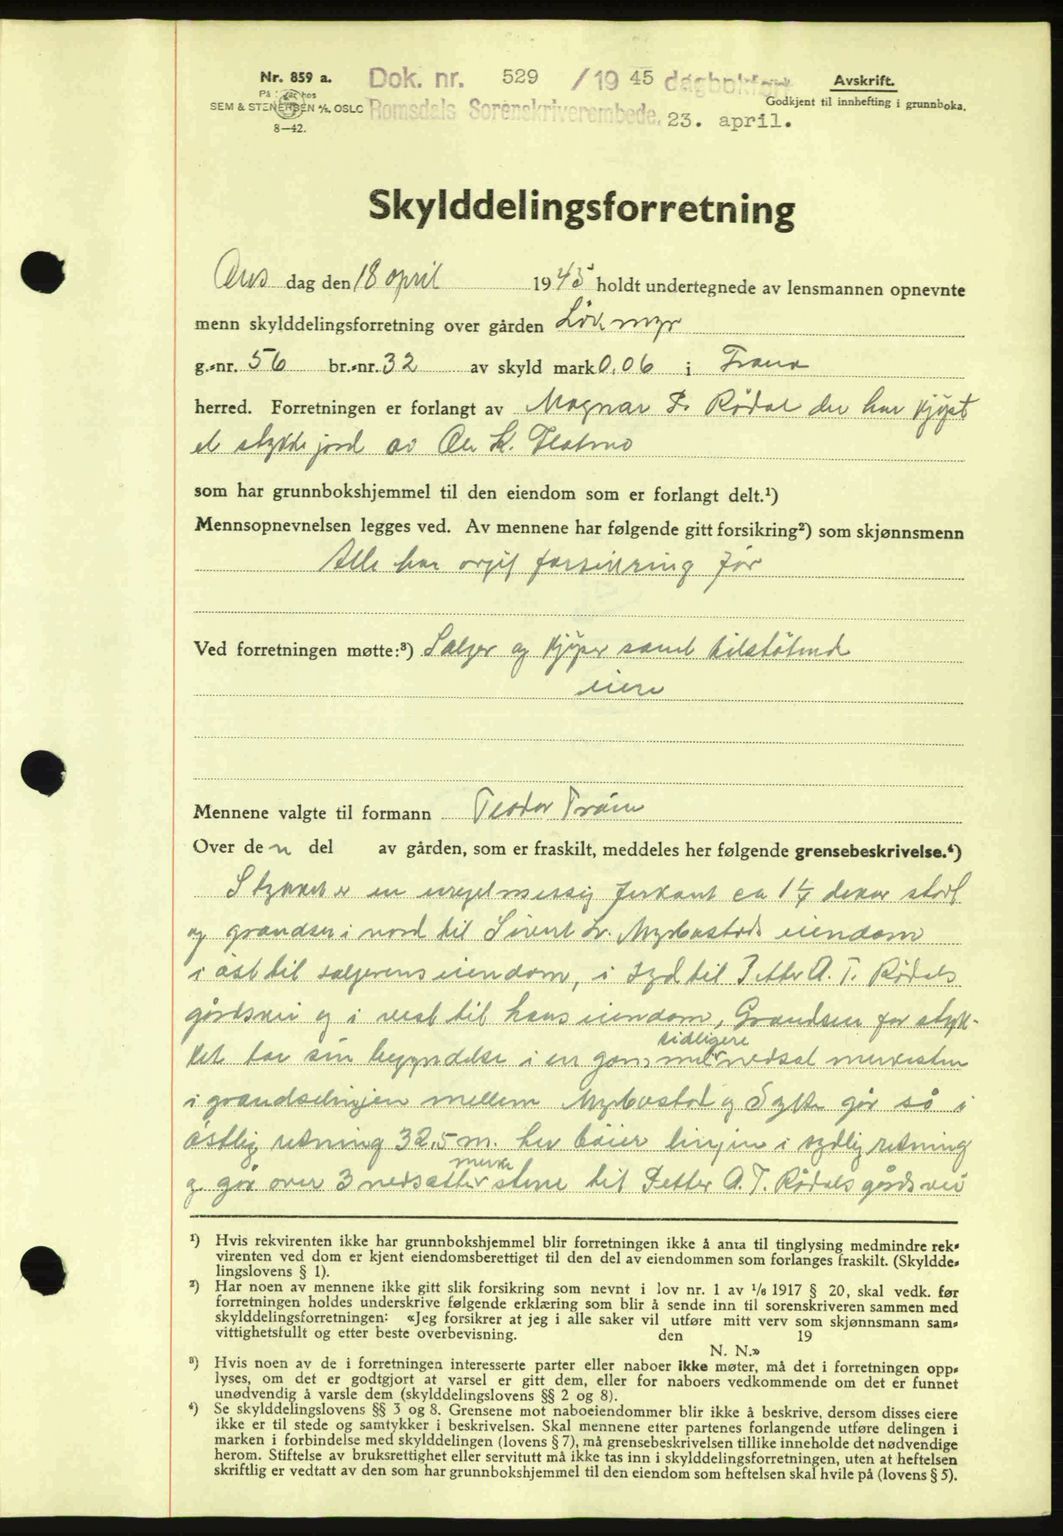 Nr. 859 a.
På lager hos
SEM & STENERSEN A/S. OSLO
8—42.
Dok. nr. 529 /1945 dagbokført
Romsdals Sorenskriverembede. 23. april.
Avskrift.
Godkjent til innhefting i grunnboka.
Skylddelingsforretning
Ons dag den 18 april 1945 holdt undertegnede av lensmannen opnevnte
menn skylddelingsforretning over gården Løkmyr
g.-nr. 56 br.-nr. 32 av skyld mark 0,06 i Frana
herred. Forretningen er forlangt av Magnar P. Rødal der har kjöpt
et stykke jord av Ole K.
som har grunnbokshjemmel til den eiendom som er forlangt delt.¹)
Mennsopnevnelsen legges ved. Av mennene har følgende gitt forsikring²) som skjønnsmenn
Alle har avgit forsikring før
Ved forretningen møtte:³) Sælger og kjöper samt tilstötende
eiere
Mennene valgte til formann Teodor
Over den del av gården, som er fraskilt, meddeles her følgende grensebeskrivelse.⁴)
Stykket er en uregelmessig firkant ca 1¼ dekar stort
og grændser i nord til Sivert Sr. Myrbostads eiendom
i öst til sælgerens eiendom, i syd til Petter A. T. Rödals
gårdsvei og i vest til hans eiendom, Grændsen for styk-
ket tar sin begyndelse i en gam. tidligere nedsat merkesten
i grændselinjen mellem Myrbostad og Sylte går så i
östlig retning 32,5 m. her böier linjen i sydlig retning
og går over 3 nedsatte merke stene til Petter A. T. Rödals gårdsvei
¹) Hvis rekvirenten ikke har grunnbokshjemmel blir forretningen ikke å anta til tinglysing medmindre rek-
virenten ved dom er kjent eiendomsberettiget til den del av eiendommen som forlanges fraskilt. (Skyldde-
lingslovens § 1).
²) Har noen av mennene ikke gitt slik forsikring som nevnt i lov nr. 1 av 1/6 1917 § 20, skal vedk. før
forretningen holdes underskrive følgende erklæring som blir å sende inn til sorenskriveren sammen med
skylddelingsforretningen: «Jeg forsikrer at jeg i alle saker vil utføre mitt verv som skjønnsmann sam-
vittighetsfullt og etter beste overbevisning. den 19
N. N.»
³) Hvis noen av de i forretningen interesserte parter eller naboer ikke møter, må det i forretningen opp-
lyses, om det er godtgjort at varsel er gitt dem, eller for naboers vedkommende om det er funnet
unødvendig å varsle dem (skylddelingslovens §§ 2 og 8).
⁴) Se skylddelingslovens §§ 3 og 8. Grensene mot naboeiendommer blir ikke å beskrive, dersom disses eiere
ikke er til stede og samtykker i beskrivelsen. Skal mennene etter partenes forlangende utføre delingen i
marken i forbindelse med skylddelingen (lovens § 7), må grensebeskrivelsen tillike inneholde det nødvendige
herom. Stiftelse av bruksrettighet eller servitutt må ikke tas inn i skylddelingsforretningen, uten at heftelsen
skriftlig er vedtatt av den som har grunnbokshjemmel til den eiendom som heftelsen skal hvile på (lovens § 5).